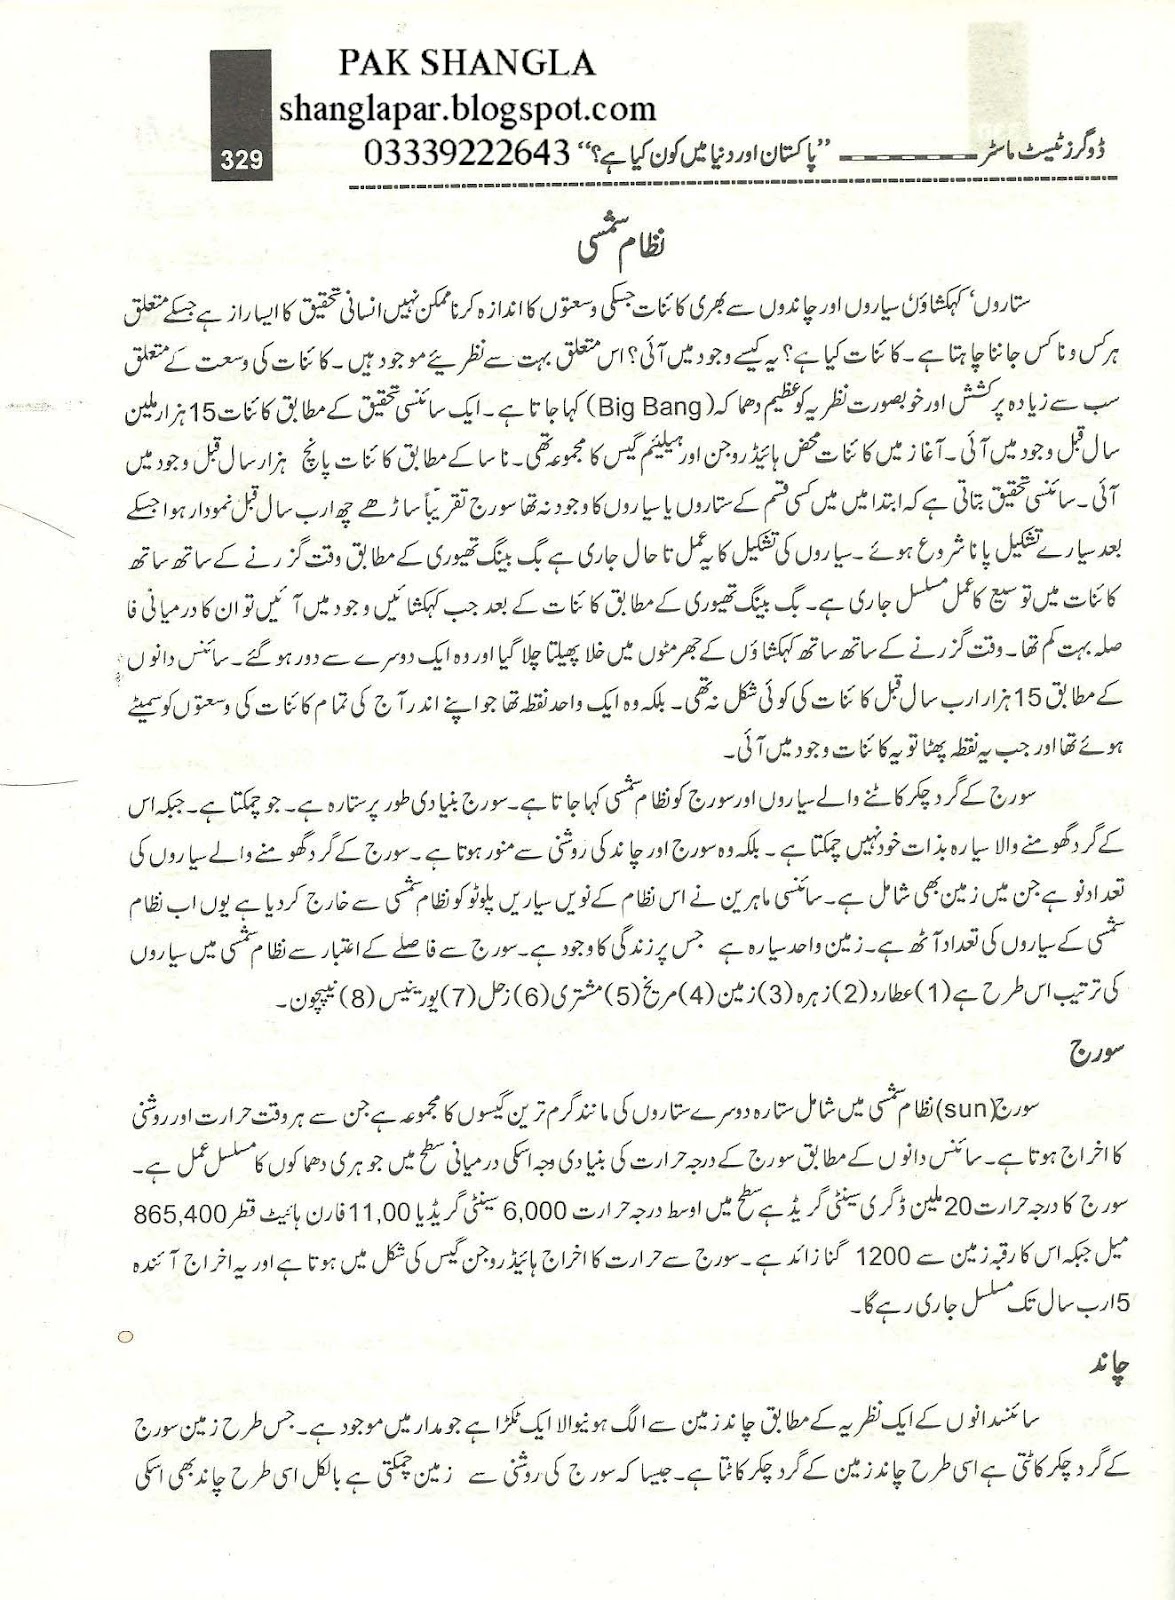 PAK SHANGLA
shanglapar.blogspot.com
03339222643
329
ڈوگرز ٹیسٹ ماسٹر ـــــــــــــ "پاکستان اور دنیا میں کون کیا ہے؟"
نظام شمسی
ستاروں' کہکشاؤں' سیاروں اور چاندوں سے بھری کائنات جسکی وسعتوں کا اندازہ کرنا ممکن نہیں انسانی تحقیق کا ایسا راز ہے جسکے متعلق
ہر کس و ناکس جاننا چاہتا ہے۔ کائنات کیا ہے؟ یہ کیسے وجود میں آئی؟ اس متعلق بہت سے نظریئے موجود ہیں۔ کائنات کی وسعت کے متعلق
سب سے زیادہ پرکشش اور خوبصورت نظریہ کو عظیم دھماکہ (Big Bang) کہا جاتا ہے۔ ایک سائنسی تحقیق کے مطابق کائنات 15 ہزار ملین
سال قبل وجود میں آئی۔ آغاز میں کائنات محض ہائیڈروجن اور ہیلیئم گیس کا مجموعہ تھی۔ ناسا کے مطابق کائنات پانچ ہزار سال قبل وجود میں
آئی۔ سائنسی تحقیق بتاتی ہے کہ ابتدا میں میں کسی قسم کے ستاروں یا سیاروں کا وجود نہ تھا سورج تقریباً ساڑھے چھ ارب سال قبل نمودار ہوا جسکے
بعد سیارے تشکیل پانا شروع ہوئے۔ سیاروں کی تشکیل کا یہ عمل تا حال جاری ہے بگ بینگ تھیوری کے مطابق وقت گزرنے کے ساتھ ساتھ
کائنات میں توسیع کا عمل مسلسل جاری ہے۔ بگ بینگ تھیوری کے مطابق کائنات کے بعد جب کہکشائیں وجود میں آئیں تو ان کا درمیانی فا
صلہ بہت کم تھا۔ وقت گزرنے کے ساتھ ساتھ کہکشاؤں کے جھرمٹوں میں خلا پھیلتا چلا گیا اور وہ ایک دوسرے سے دور ہو گئے۔ سائنس دانوں
کے مطابق 15 ہزار ارب سال قبل کائنات کی کوئی شکل نہ تھی۔ بلکہ وہ ایک واحد نقطہ تھا جو اپنے اندر آج کی تمام کائنات کی وسعتوں کو سمیٹے
ہوئے تھا اور جب یہ نقطہ پھٹا تو یہ کائنات وجود میں آئی۔
سورج کے گرد چکر کاٹنے والے سیاروں اور سورج کو نظام شمسی کہا جاتا ہے۔ سورج بنیادی طور پر ستارہ ہے۔ جو چمکتا ہے۔ جبکہ اس
کے گرد گھومنے والا سیارہ بذات خود نہیں چمکتا ہے۔ بلکہ وہ سورج اور چاند کی روشنی سے منور ہوتا ہے۔ سورج کے گرد گھومنے والے سیاروں کی
تعداد نو ہے جن میں زمین بھی شامل ہے۔ سائنسی ماہرین نے اس نظام کے نویں سیاریں پلوٹو کو نظام شمسی سے خارج کر دیا ہے یوں اب نظام
شمسی کے سیاروں کی تعداد آٹھ ہے۔ زمین واحد سیارہ ہے جس پر زندگی کا وجود ہے۔ سورج سے فاصلے کے اعتبار سے نظام شمسی میں سیاروں
کی ترتیب اس طرح ہے (1) عطارد (2) زہرہ (3) زمین (4) مریخ (5) مشتری (6) زحل (7) یورینیس (8) نیپچون۔
سورج
سورج (sun) نظام شمسی میں شامل ستارہ دوسرے ستاروں کی مانند گرم ترین گیسوں کا مجموعہ ہے جن سے ہر وقت حرارت اور روشنی
کا اخراج ہوتا ہے۔ سائنس دانوں کے مطابق سورج کے درجہ حرارت کی بنیادی وجہ اسکی درمیانی سطح میں جوہری دھماکوں کا مسلسل عمل ہے۔
سورج کا درجہ حرارت 20 ملین ڈگری سینٹی گریڈ ہے سطح میں اوسط درجہ حرارت 6,000 سینٹی گریڈ یا 11,00 فارن ہائیٹ قطر 865,400
میل جبکہ اس کا رقبہ زمین سے 1200 گنا زائد ہے۔ سورج سے حرارت کا اخراج ہائیڈروجن گیس کی شکل میں ہوتا ہے اور یہ اخراج آئندہ
5 ارب سال تک مسلسل جاری رہے گا۔
چاند
سائنسدانوں کے ایک نظریہ کے مطابق چاند زمین سے الگ ہونیوالا ایک ٹکڑا ہے جو مدار میں موجود ہے۔ جس طرح زمین سورج
کے گرد چکر کاٹتی ہے اسی طرح چاند زمین کے گرد چکر کاٹتا ہے۔ جیسا کہ سورج کی روشنی سے زمین چمکتی ہے بالکل اسی طرح چاند بھی اسکی